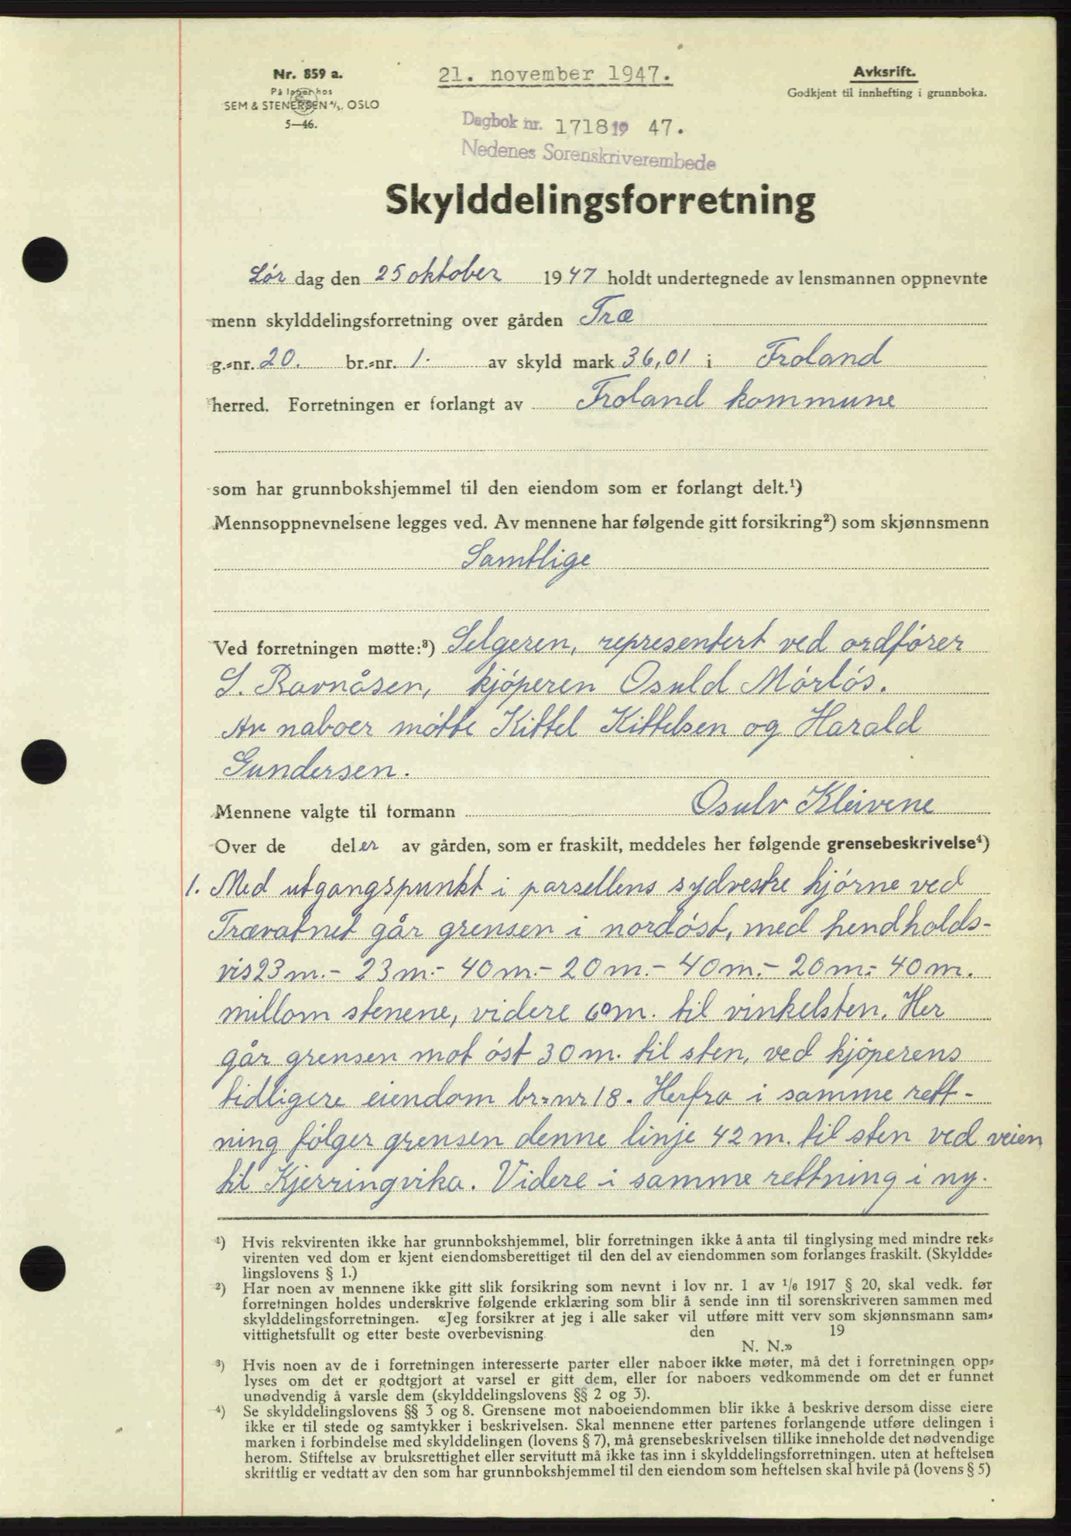 Nr. 859 a.
På lager hos
SEM & STENERSEN A/S. OSLO
5—46.
21. november 1947.
Avksrift.
Godkjent til innhefting i grunnboka.
Dagbok nr. 1718 19 47.
Nedenes Sorenskriverembede
Skylddelingsforretning
Lør dag den 25 oktober 1947 holdt undertegnede av lensmannen oppnevnte
menn skylddelingsforretning over gården Træ
g.-nr. 20. br.-nr. 1. av skyld mark 36,01 i Froland
herred. Forretningen er forlangt av Froland kommune
som har grunnbokshjemmel til den eiendom som er forlangt delt.¹)
Mennsoppnevnelsene legges ved. Av mennene har følgende gitt forsikring²) som skjønnsmenn
Samtlige
Ved forretningen møtte:³) Selgeren, representert ved ordfører
S. Ravnåsen, kjøperen Osuld Mørløs.
Av naboer møtte Kittel Kittelsen og Harald
Gundersen.
Mennene valgte til formann Osulv Kleivene
Over de deler av gården, som er fraskilt, meddeles her følgende grensebeskrivelse⁴)
1. Med utgangspunkt i parsellens sydvestre hjørne ved
Trævatnet går grensen i nordøst, med hendholds-
vis 23 m.- 23 m.- 40 m.- 20 m.- 40 m.- 20 m.- 40 m.
millom stenene, videre 60 m. til vinkelsten. Her
går grensen mot øst 30 m. til sten, ved kjøperens
tidligere eiendom br.nr 18. Herfra i samme rett-
ning følger grensen denne linje 42 m. til sten ved veien
til Kjerringvika. Videre i samme rettning i ny.
¹) Hvis rekvirenten ikke har grunnbokshjemmel, blir forretningen ikke å anta til tinglysing med mindre rek-
virenten ved dom er kjent eiendomsberettiget til den del av eiendommen som forlanges fraskilt. (Skyldde-
lingslovens § 1.)
²) Har noen av mennene ikke gitt slik forsikring som nevnt i lov nr. 1 av 1/6 1917 § 20, skal vedk. før
forretningen holdes underskrive følgende erklæring som blir å sende inn til sorenskriveren sammen med
skylddelingsforretningen. «Jeg forsikrer at jeg i alle saker vil utføre mitt verv som skjønnsmann sam-
vittighetsfullt og etter beste overbevisning den 19
N. N.»
³) Hvis noen av de i forretningen interesserte parter eller naboer ikke møter, må det i forretningen opp-
lyses om det er godtgjort at varsel er gitt dem, eller for naboers vedkommende om det er funnet
unødvendig å varsle dem (skylddelingslovens §§ 2 og 3).
⁴) Se skylddelingslovens §§ 3 og 8. Grensene mot naboeiendommen blir ikke å beskrive dersom disse eiere
ikke er til stede og samtykker i beskrivelsen. Skal mennene etter partenes forlangende utføre delingen i
marken i forbindelse med skylddelingen (lovens § 7), må grensebeskrivelsen tillike inneholde det nødvendige
herom. Stiftelse av bruksrettighet eller servitutt må ikke tas inn i skylddelingsforretningen. uten at heftelsen
skriftlig er vedtatt av den som har grunnbokshjemmel til den eiendom som heftelsen skal hvile på (lovens § 5)